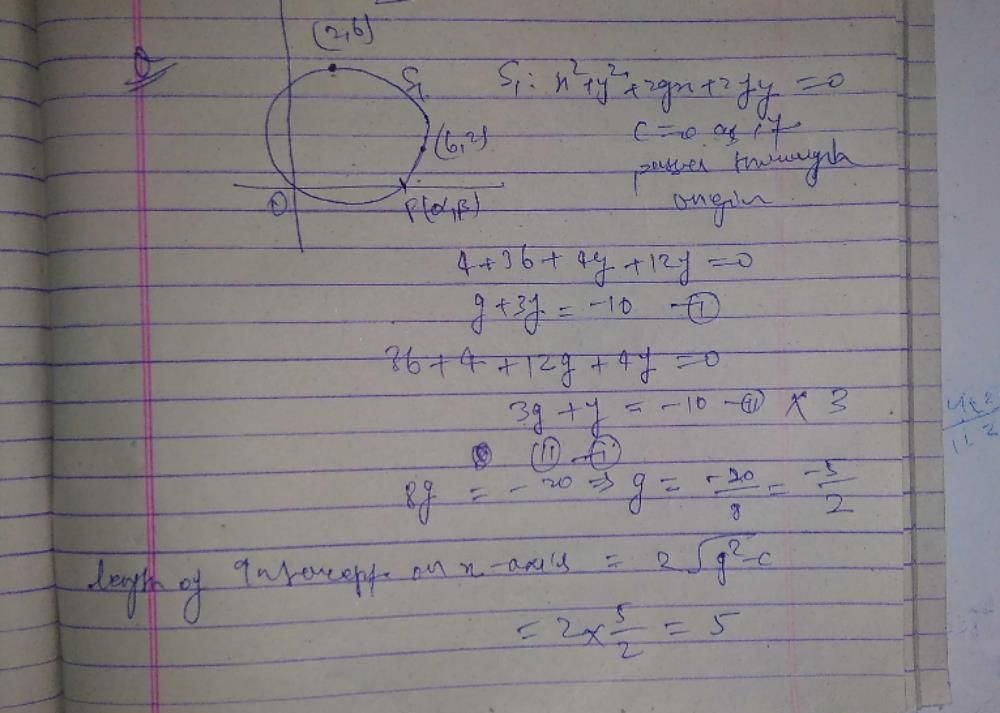 (2,6)
S₁
S₁: x²+y²+2gx+2fy=0
(6,2)
c=0 as it
passes through
origin
O
P(α,β)
4+36+4g+12f=0
g+3f=-10 -(i)
36+4+12g+4f=0
3g+f=-10-(ii) × 3
(ii)-(i)
8g = -20 ⇒ g = -20/8 = -5/2
length of intercept on x-axis = 2√g²-c
= 2×5/2 = 5